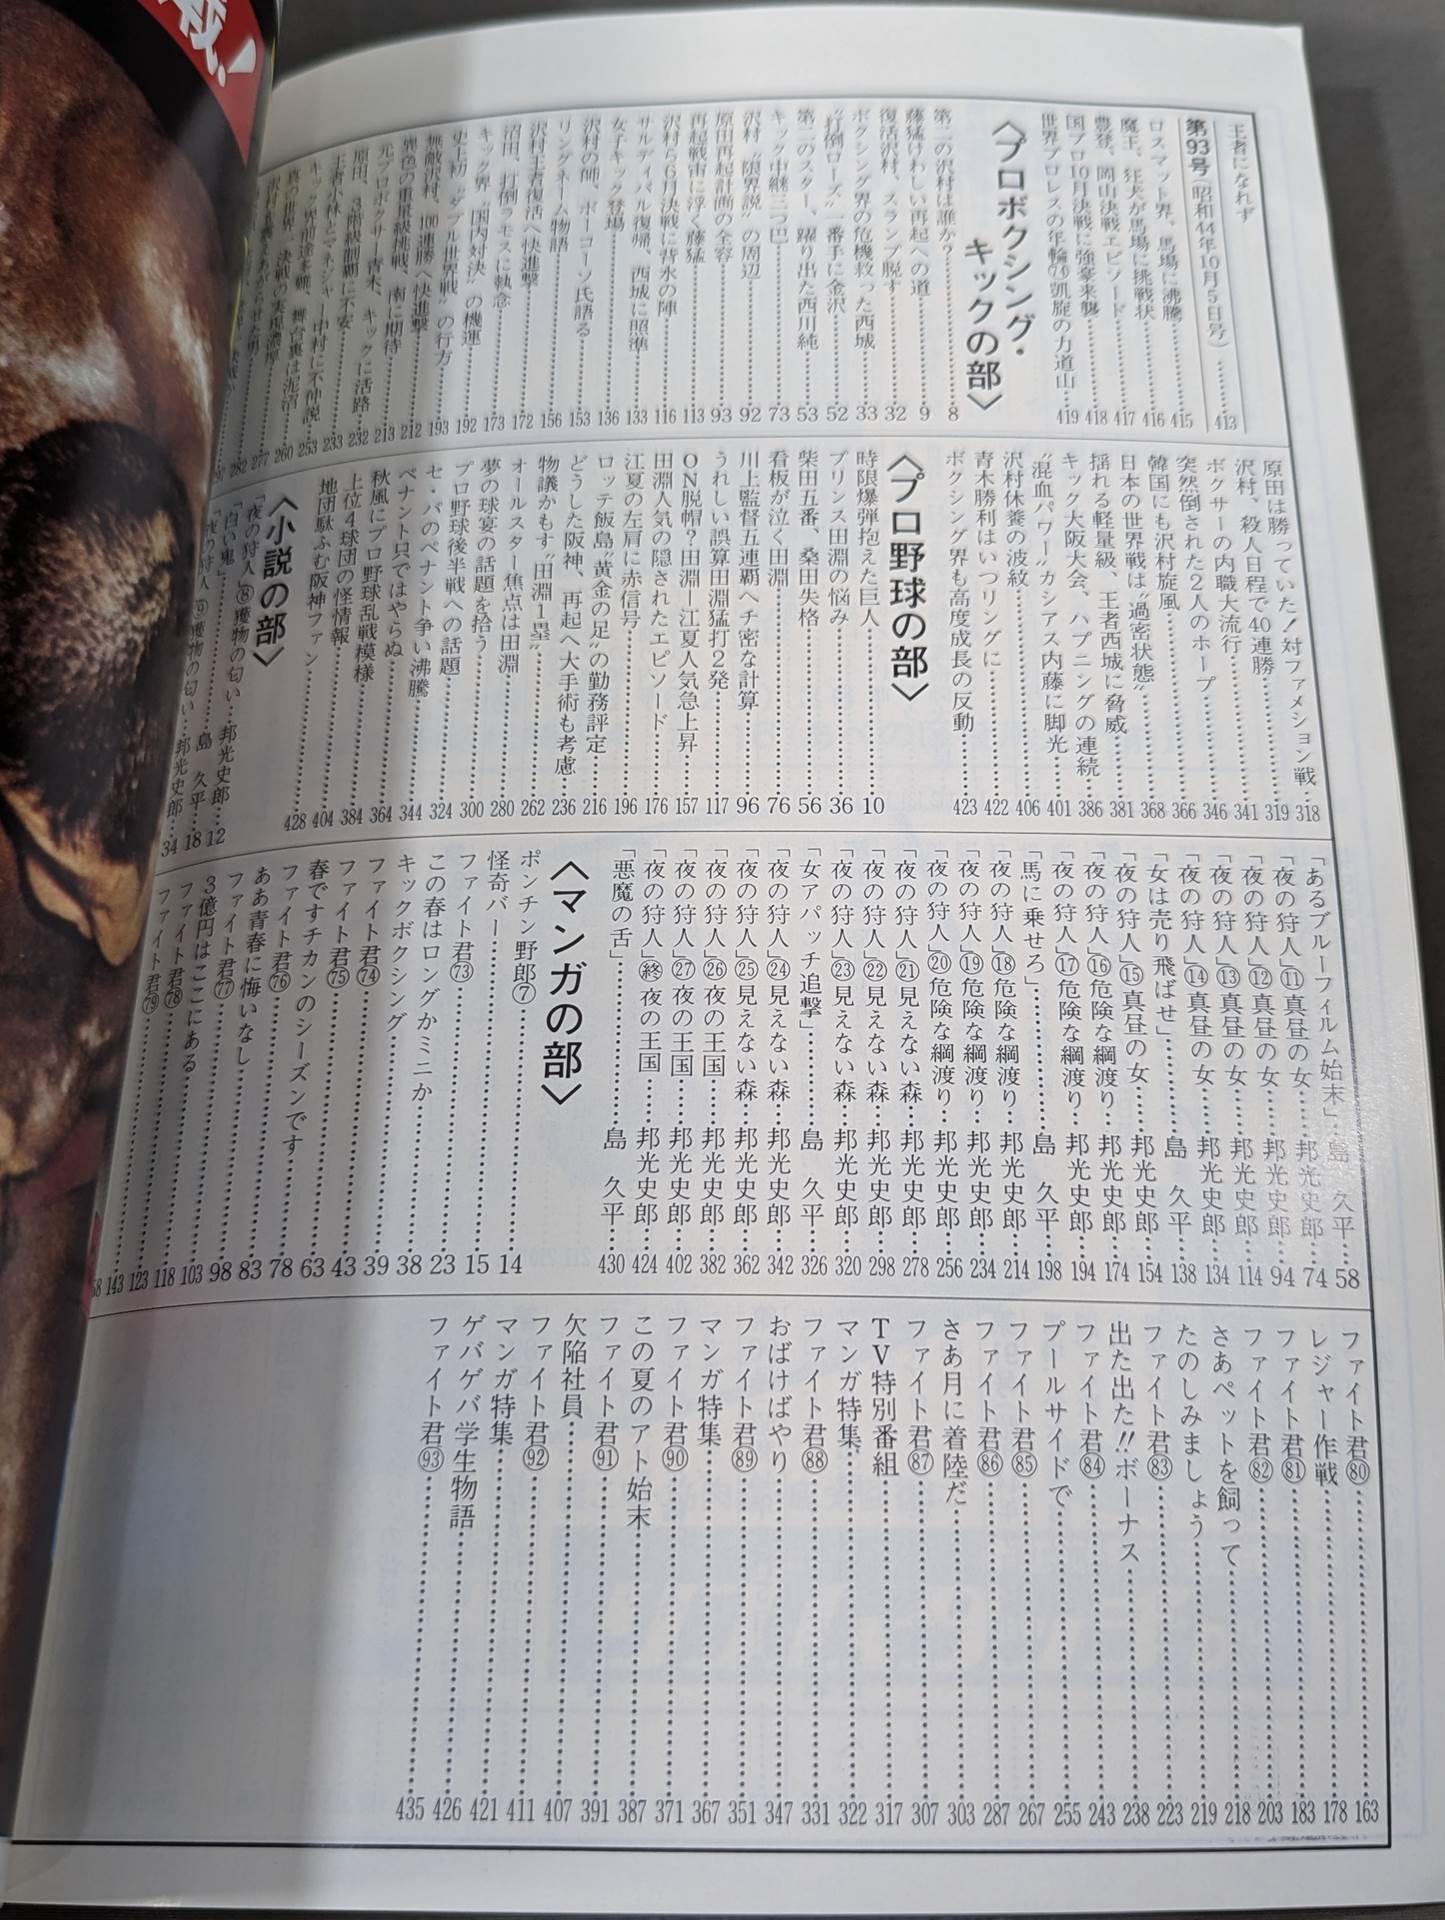 戦!
王者になれず……413
第93号(昭和44年10月5日号)
ロスマット界、馬場に沸騰……415
魔王、狂犬が馬場に挑戦状……416
豊登、岡山決戦エピソード……417
国プロ10月決戦に強豪来襲……418
世界プロレスの年輪㉔凱旋の力道山……419
〈プロボクシング・
キックの部〉
第二の沢村は誰か?……8
藤猛けわしい再起への道……9
復活沢村、スランプ脱す……32
ボクシング界の危機救った西城……33
“打倒ローズ”一番手に金沢……52
第二のスター、躍り出た西川純……53
キック中継三つ巴……73
沢村“限界説”の周辺……92
原田再起計画の全容……93
再起戦宙に浮く藤猛……113
沢村ら6月決戦に背水の陣……116
サルディバル復帰、西城に照準……133
女子キック登場……136
沢村の師、ポーコーソ氏語る……153
リングネーム物語……156
沢村王者復活へ快進撃……172
沼田、打倒ラモスに執念……173
キック界“国内対決”の機運……192
史上初“ダブル世界戦”の行方……193
無敵沢村、100連勝へ快進撃……212
異色の重量級挑戦、南に期待……213
元プロボクサー青木、キックに活路……232
原田、3階級制覇に不安……233
王者小林とマネジャー中村に不仲説……253
キック界前途多難、舞台裏は泥沼……260
真の世界一決戦の実現濃厚……277
沢村を震えあがらせた男……282
原田は勝っていた!対ファメション戦……318
沢村、殺人日程で40連勝……319
ボクサーの内職大流行……341
突然倒された2人のホープ……346
韓国にも沢村旋風……366
日本の世界戦は“過密状態”……368
揺れる軽量級、王者西城に脅威……381
キック大阪大会、ハプニングの連続……386
“混血パワー”カシアス内藤に脚光……401
沢村休養の波紋……406
青木勝利はいつリングに……422
ボクシング界も高度成長の反動……423
〈プロ野球の部〉
時限爆弾抱えた巨人……10
プリンス田淵の悩み……36
柴田五番、桑田失格……56
看板が泣く田淵……76
川上監督五連覇へチ密な計算……96
うれしい誤算田淵猛打2発……117
ON脱帽?田淵ー江夏人気急上昇……157
田淵人気の隠されたエピソード……176
江夏の左肩に赤信号……196
ロッテ飯島“黄金の足”の勤務評定……216
どうした阪神、再起へ大手術も考慮……236
物議かもす“田淵1塁”……262
オールスター焦点は田淵……280
夢の球宴の話題を拾う……300
プロ野球後半戦への話題……324
セ・パのペナント争い沸騰……344
ペナント只ではやらぬ……364
秋風にプロ野球乱戦模様……384
上位4球団の怪情報……404
地団駄ふむ阪神ファン……428
〈小説の部〉
「夜の狩人」⑧獲物の匂い…邦光史郎…12
「白い鬼」……島 久平…18
「夜の狩人」⑨獲物の匂い…邦光史郎…34
「あるブルーフィルム始末」島 久平…58
「夜の狩人」⑪真昼の女…邦光史郎…74
「夜の狩人」⑫真昼の女…邦光史郎…94
「夜の狩人」⑬真昼の女…邦光史郎…114
「夜の狩人」⑭真昼の女…邦光史郎…134
「女は売り飛ばせ」……島 久平…138
「夜の狩人」⑮真昼の女…邦光史郎…154
「夜の狩人」⑯危険な綱渡り…邦光史郎…174
「夜の狩人」⑰危険な綱渡り…邦光史郎…194
「馬に乗せろ」……島 久平…198
「夜の狩人」⑱危険な綱渡り…邦光史郎…214
「夜の狩人」⑲危険な綱渡り…邦光史郎…234
「夜の狩人」⑳危険な綱渡り…邦光史郎…256
「夜の狩人」㉑見えない森…邦光史郎…278
「夜の狩人」㉒見えない森…邦光史郎…298
「夜の狩人」㉓見えない森…邦光史郎…320
「女アパッチ追撃」……島 久平…326
「夜の狩人」㉔見えない森…邦光史郎…342
「夜の狩人」㉕見えない森…邦光史郎…362
「夜の狩人」㉖夜の王国…邦光史郎…382
「夜の狩人」㉗夜の王国…邦光史郎…402
「夜の狩人」(終)夜の王国…邦光史郎…424
「悪魔の舌」……島 久平…430
〈マンガの部〉
ポンチン野郎⑦……14
怪奇バー……15
ファイト君㊷……23
この春はロングかミニか……38
キックボクシング……39
ファイト君㊹……43
ファイト君㊺……63
春ですチカンのシーズンです……78
ファイト君(76)……83
ああ青春に悔いなし……98
ファイト君(77)……103
3億円はここにある……118
ファイト君(78)……123
ファイト君(79)……143
ファイト君(80)……163
レジャー作戦……178
ファイト君(81)……183
ファイト君(82)……203
さあペットを飼って……218
たのしみましょう……219
ファイト君(83)……223
出た出た!!ボーナス……238
ファイト君(84)……243
プールサイドで……255
ファイト君(85)……267
ファイト君(86)……287
さあ月に着陸だ……303
ファイト君(87)……307
TV特別番組……317
マンガ特集……322
ファイト君(88)……331
おばけばやり……347
ファイト君(89)……351
マンガ特集……367
ファイト君(90)……371
この夏のアト始末……387
ファイト君(91)……391
欠陥社員……407
ファイト君(92)……411
マンガ特集……421
ゲバゲバ学生物語……426
ファイト君(93)……435